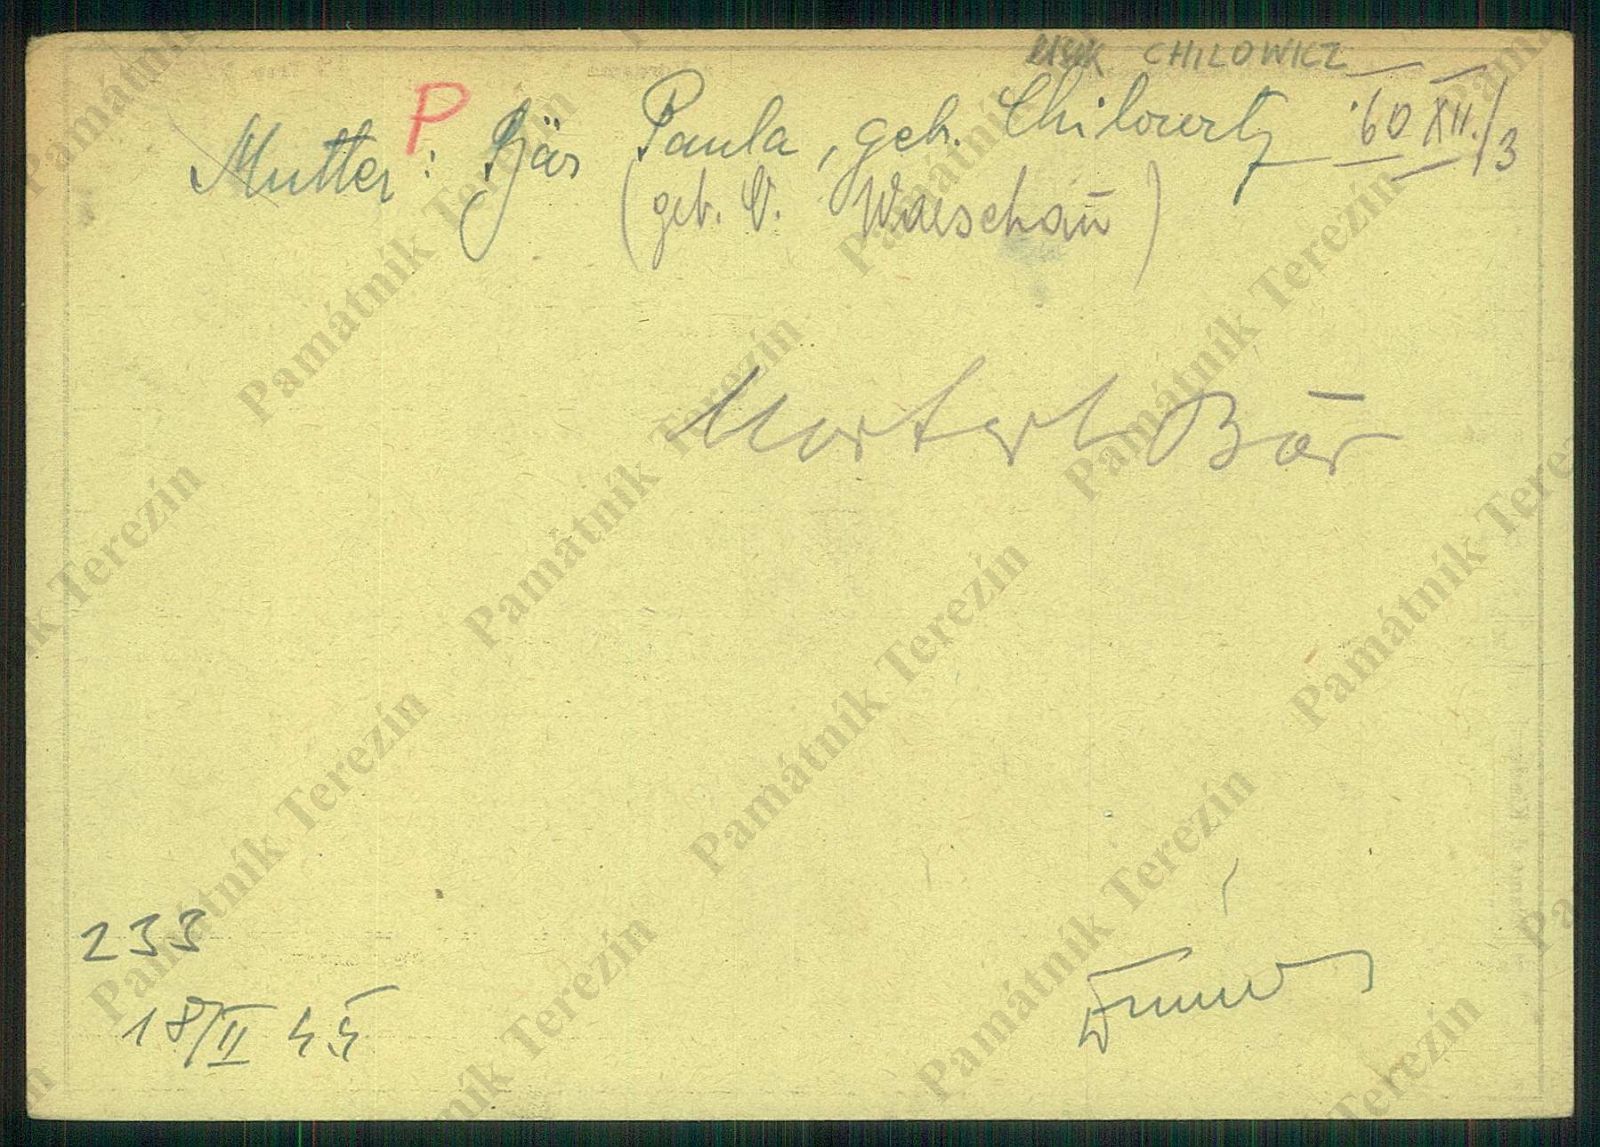 CHILOWICZ
P
Mutter: Bär Paula, geb. Chilowitz 60 XII./3
(geb. V. Warschau)
Bär
233
18/II 45
Památník Terezín